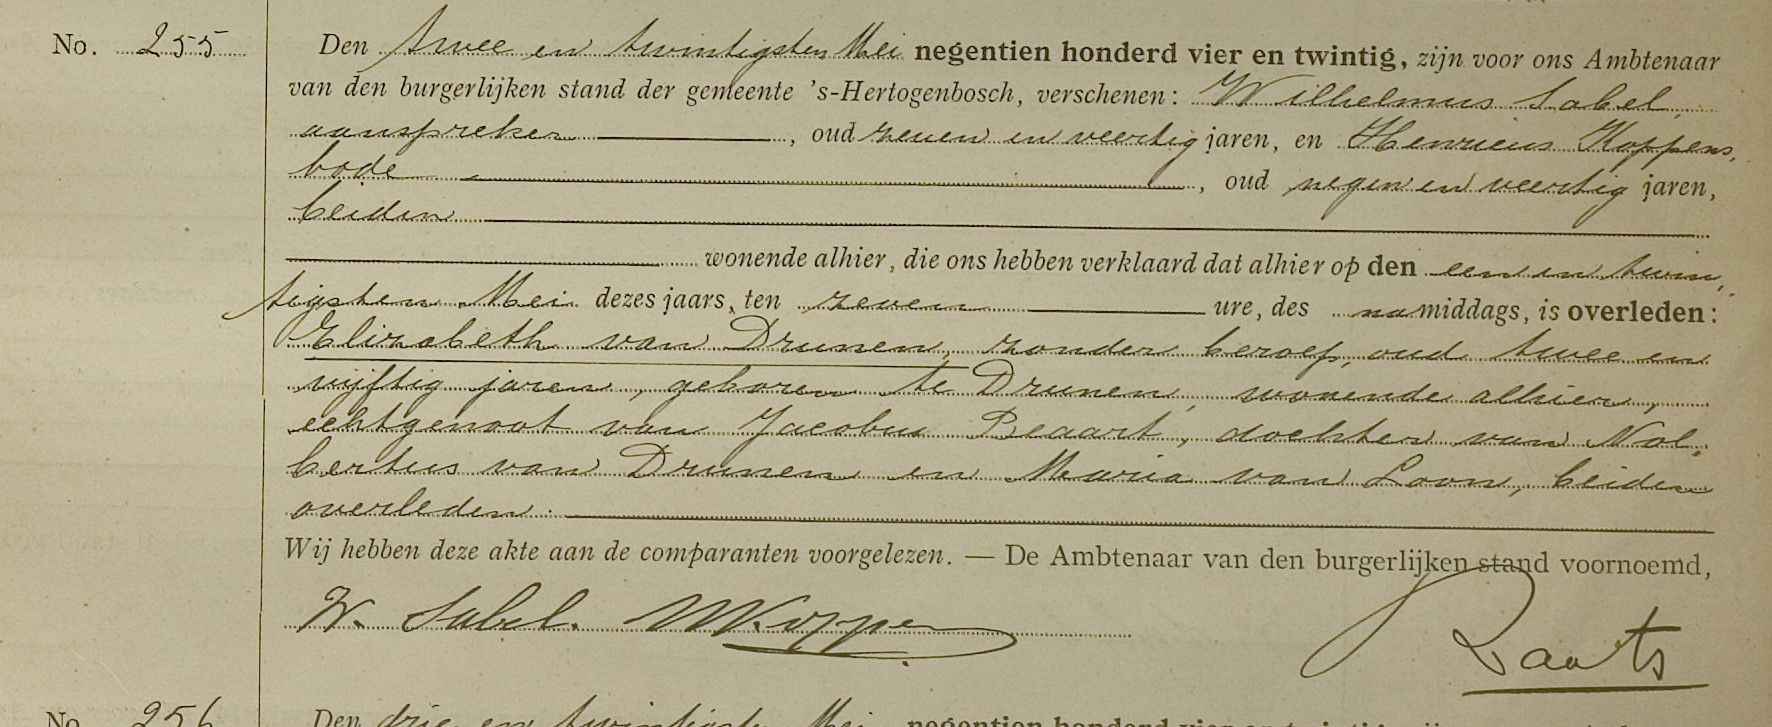 No. 255 Den twee en twintigsten Mei negentien honderd vier en twintig, zijn voor ons Ambtenaar
van den burgerlijken stand der gemeente 's-Hertogenbosch, verschenen: Wilhelmus Sabel,
aanspreker, oud zeven en veertig jaren, en Henricus Koppens,
bode, oud negen en veertig jaren,
beiden
wonende alhier, die ons hebben verklaard dat alhier op den een en twin,
tigsten Mei dezes jaars, ten zeven ure, des na middags, is overleden:
Elizabeth van Drunen, zonder beroep, oud twee en
vijftig jaren, geboren te Drunen, wonende alhier,
echtgenoot van Jacobus Beaart, dochter van Nol,
bertus van Drunen en Maria van Loon, beiden
overleden.
Wij hebben deze akte aan de comparanten voorgelezen. — De Ambtenaar van den burgerlijken stand voornoemd,
W. Sabel.
No. 256 Den drie en twintigsten Mei negentien honderd vier en twintig